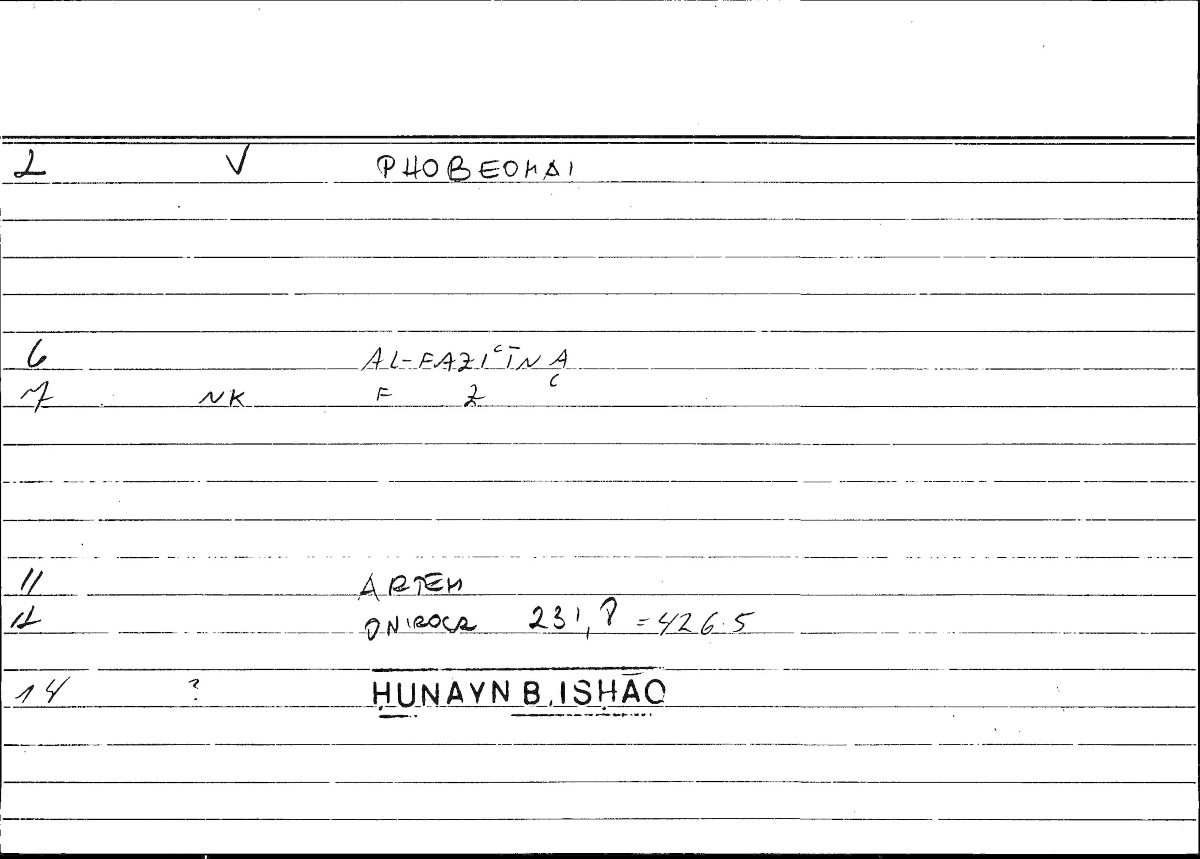 2 V PHOBEOMAI
6 AL-FAZIʿĪNA
7 NK F Z ʿ
11 ARTEM
12 ONIROCR 231,8 = 426.5
14 ? ḤUNAYN B. ISḤĀQ